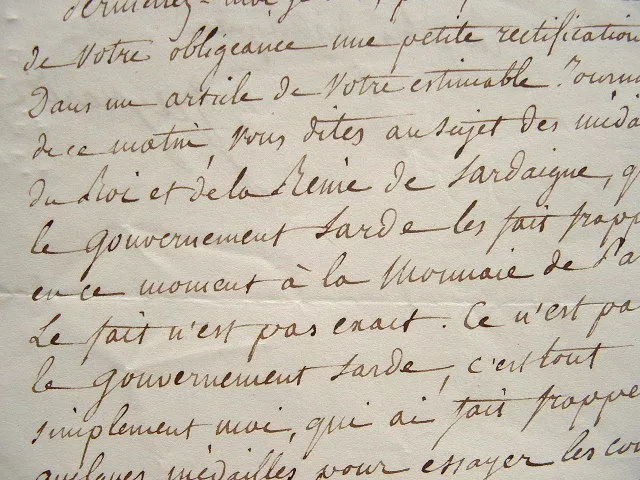 Permettez-moi je
de votre obligeance une petite rectification
Dans un article de votre estimable Journ
de ce matin, vous dites au sujet des méda
du Roi et de la Reine de Sardaigne, q
le gouvernement Sarde les fait frapp
en ce moment à la Monnaie de Pa
Le fait n'est pas exact. Ce n'est pa
le gouvernement Sarde, c'est tout
simplement moi, qui ai fait frappe
quelques médailles pour essayer les coi